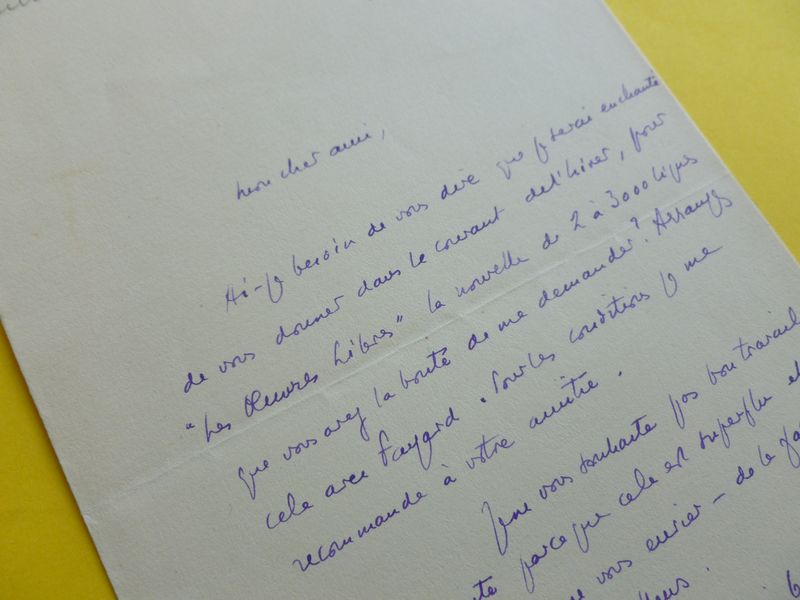 mon cher ami,
Ai-je besoin de vous dire que je serai enchanté
de vous donner dans le courant de l'hiver, pour
"Les Œuvres Libres" la nouvelle de 2 à 3000 lignes
que vous avez la bonté de me demander ? Arrangez
cela avec Fayard. Pour les conditions je me
recommande à votre amitié.
Je ne vous souhaite pas bon travail
parce que cela est superflu et
vous envier - de la